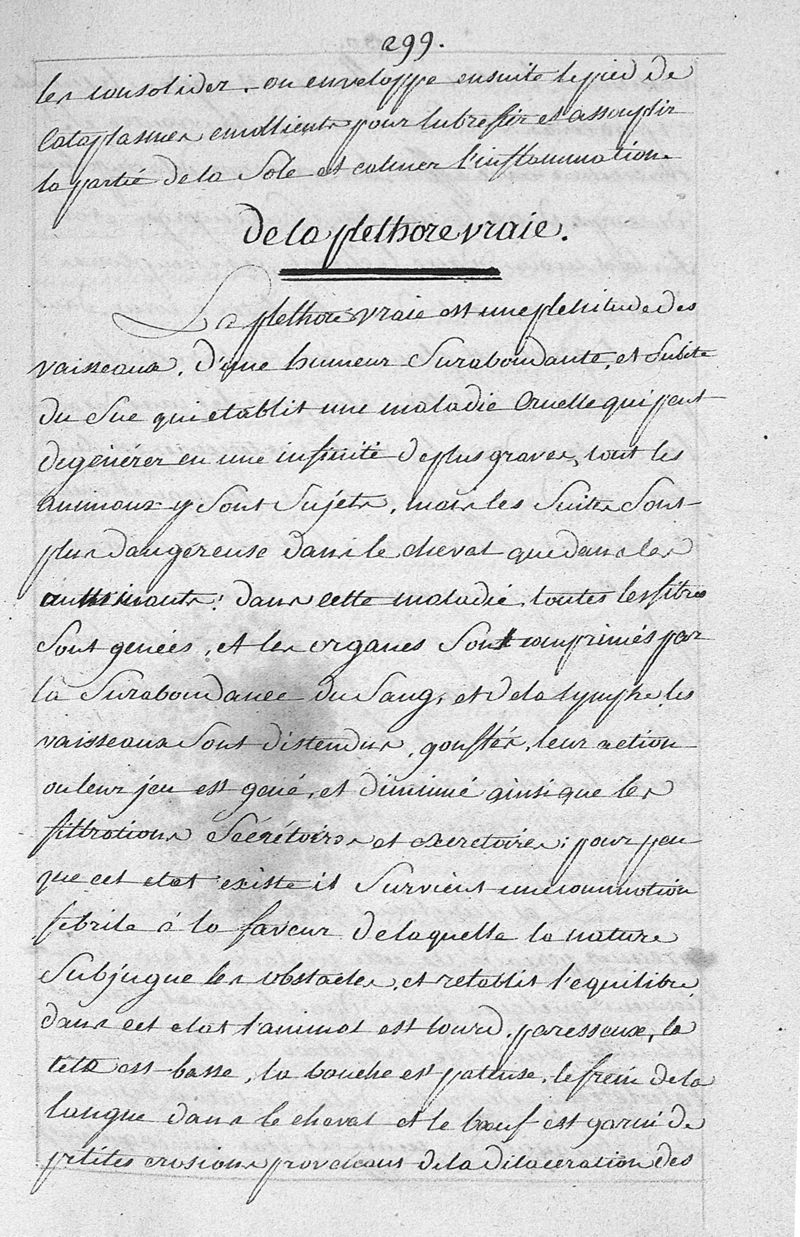 299.
les consolider. on enveloppe ensuite le pied de
Cataplasmes emollients pour lubrefier et assouplir
la partie de la Sole et calmer l'inflammation.
De la plethore vraie.
La plethore vraie est une plenitude des
vaisseaux, d'une humeur Surabondante, et Subite
du Suc qui etablit une maladie Cruelle qui peut
degénérer en une infinité de plus graves, tout les
animaux y Sont Sujets, mais les Suites Sont
plus dangereuse dans le cheval que dans les
dans cette maladie, toutes les fibres
Sont genées, et les organes Sont comprimés par
la Surabondance du Sang, et de la lymphe, les
vaisseaux Sont distendus, gonflés, leur action
ou leur jeu est gené, et diminué ainsi que les
filtrations Sécrétoires et excretoires; pour peu
que cet etat existe il Survient une commotion
febrile à la faveur de laquelle la nature
Subjugue les obstacles, et retablit l'equilibre
dans cet etat l'animal est lourd, paresseux, la
tete est basse, la bouche est pateuse, le frein de la
langue dans le cheval et le bœuf est garni de
petites erosions provenant de la dilaceration des